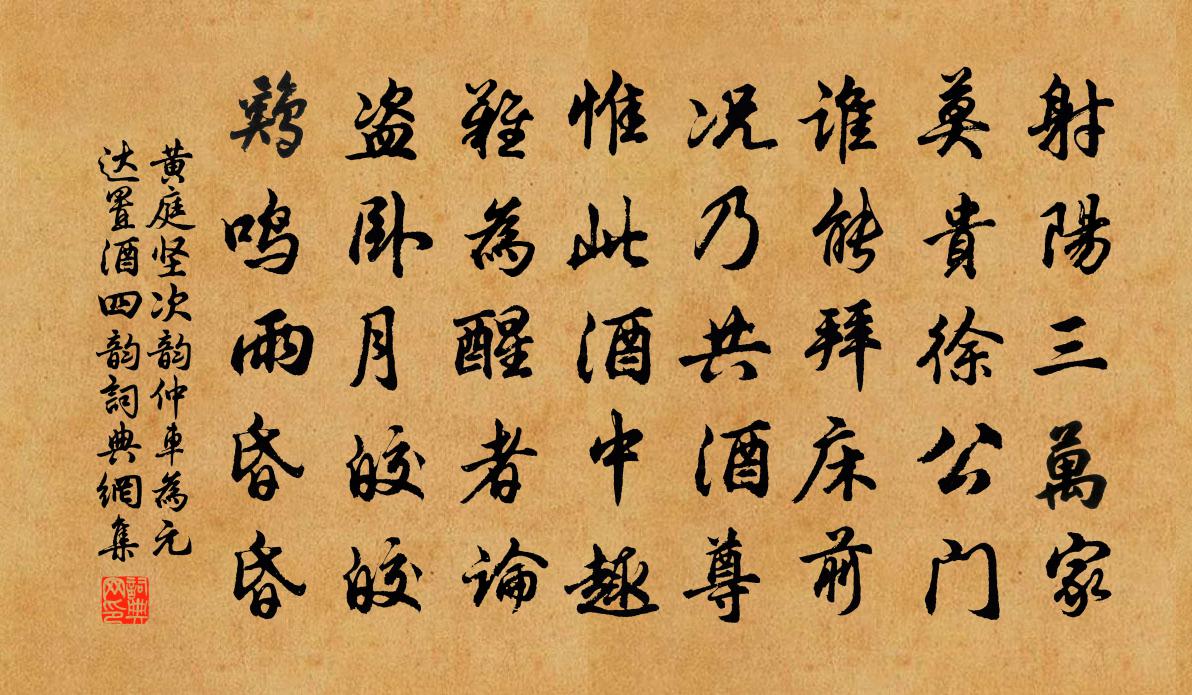 射陽三萬家
莫貴徐公门
誰能拜床前
况乃共酒尊
惟此酒中趣
難為醒者論
盗卧月皎皎
鷄鳴雨昏昏
黄庭坚次韵仲車為元
达置酒四韵詞典網集
詞典
网印